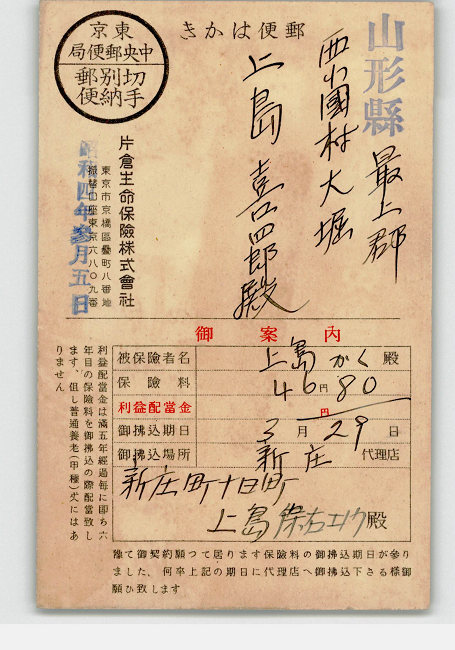 郵便はかき
東京
中央郵便局
切手別納郵便
山形縣
最上郡
西小國村大堀
上島喜四郎殿
片倉生命保險株式會社
東京市京橋區疊町八番地
振替口座東京六八〇九番
昭和四年參月五日
御案內
被保險者名 上島かく殿
保險料 46円80
利益配當金 円
御拂込期日 3月29日
御拂込場所 新庄代理店
新庄町十日町
上島 殿
利益配當金は滿五年經過每に卽ち六
年目の保險料を御拂込の際配當致し
ます、但し普通養老(甲種)丈にはあ
りません
豫て御契約願つて居ります保險料の御拂込期日が參り
ました、何卒上記の期日に代理店へ御拂込下さる樣御
願ひ致します